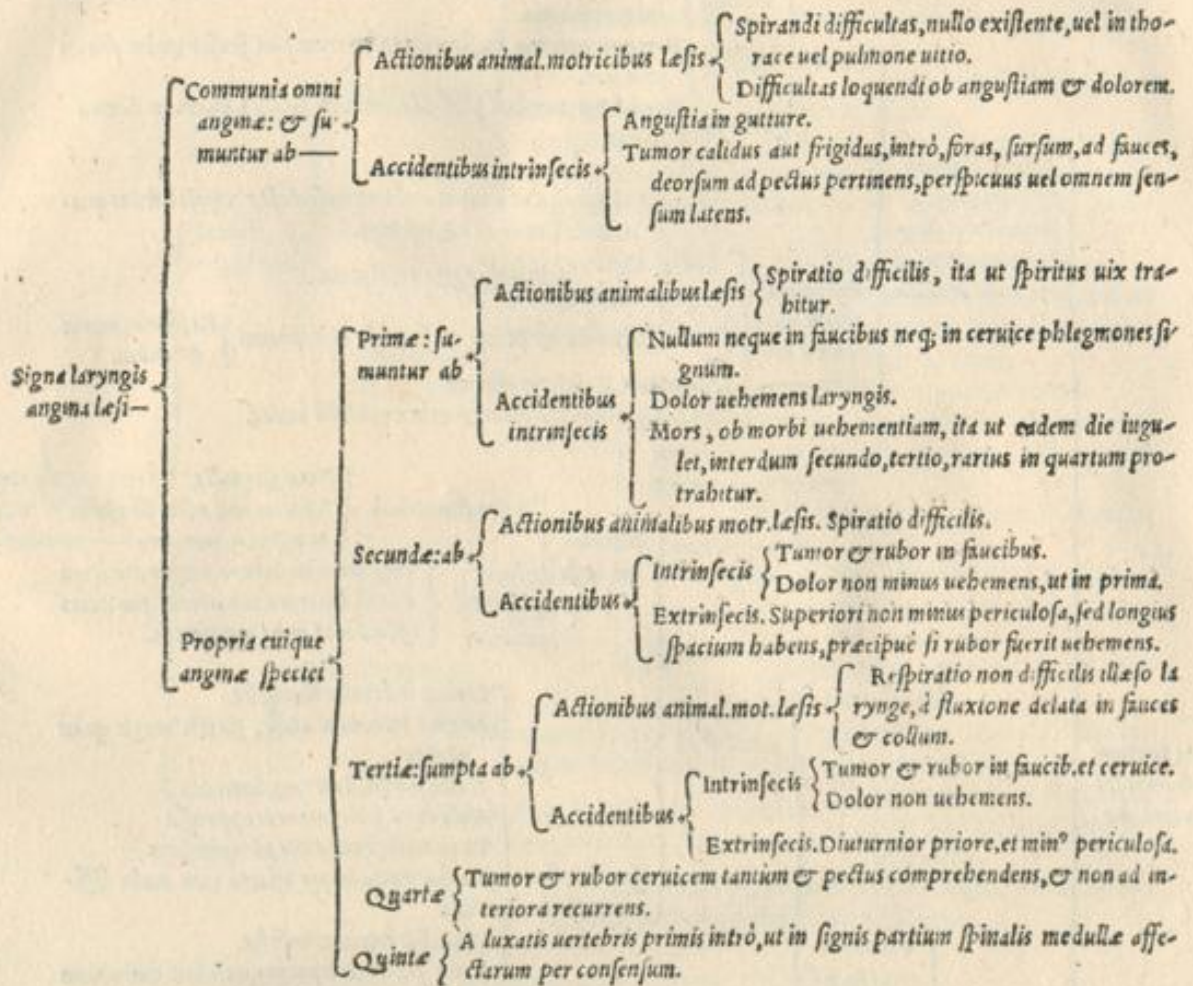 Signa laryngis
angina læsi—
Communia omni
anginæ: & su-
muntur ab—
Actionibus animal. motricibus læsis
Spirandi difficultas, nullo existente, uel in tho-
race uel pulmone uitio.
Difficultas loquendi ob angustiam & dolorem.
Accidentibus intrinsecis
Angustia in gutture.
Tumor calidus aut frigidus, intrò, foras, sursum, ad fauces,
deorsum ad pectus pertinens, perspicuus uel omnem sen-
sum latens.
Propria cuique
anginæ speciei
Primæ: su-
muntur ab
Actionibus animalibus læsis
Spiratio difficilis, ita ut spiritus uix tra-
hitur.
Accidentibus
intrinsecis
Nullum neque in faucibus neq; in ceruice phlegmones si-
gnum.
Dolor uehemens laryngis.
Mors, ob morbi uehementiam, ita ut eadem die iugu-
let, interdum secundo, tertio, rarius in quartum pro-
trahitur.
Secundæ: ab
Actionibus animalibus motr. læsis. Spiratio difficilis.
Accidentibus
Intrinsecis
Tumor & rubor in faucibus.
Dolor non minus uehemens, ut in prima.
Extrinsecis. Superiori non minus periculosa, sed longius
spacium habens, præcipuè si rubor fuerit uehemens.
Tertiæ: sumpta ab
Actionibus animal. mot. læsis
Respiratio non difficilis illæso la
rynge, à fluxione delata in fauces
& collum.
Accidentibus
Intrinsecis
Tumor & rubor in faucib. et ceruice.
Dolor non uehemens.
Extrinsecis. Diuturnior priore, et minꝰ periculosa.
Quartæ
Tumor & rubor ceruicem tantum & pectus comprehendens, & non ad in-
teriora recurrens.
Quintæ
A luxatis uertebris primis intrò, ut in signis partium spinalis medullæ affe-
ctarum per consensum.